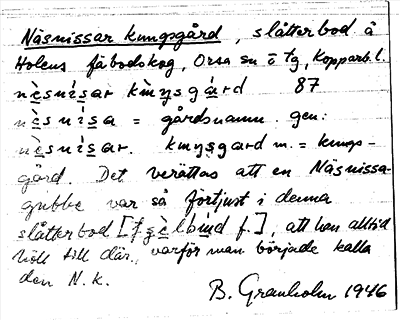 Näsnissar kungsgård, slåtterbod å
Holens fäbodskog, Orsa sn o tg, Kopparb. l.
nèsnísar kùŋsgárd 87
nèsnísa = gårdsnamn. gen:
nèsnísar. kuŋsgard m. = kungs-
gård. Det berättas att en Näsnissa-
gubbe var så förtjust i denna
slåtterbod [ f.], att han alltid
höll till där, varför man började kalla
den N. k.
B. Granholm 1946